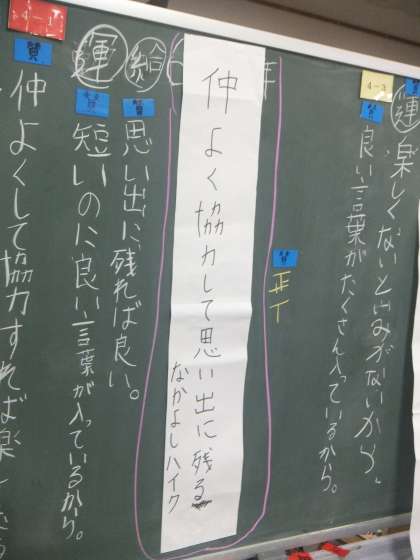 4-3
運
楽しくないと意味がないから、
賛
良い言葉がたくさん入っているから。
賛
正丁
仲よく協力して思い出に残る
なかよしハイク
給
賛
思い出に残れば良い。
運
短いのに良い言葉が入っているから。
4-1
賛
仲よくして協力すれば楽し